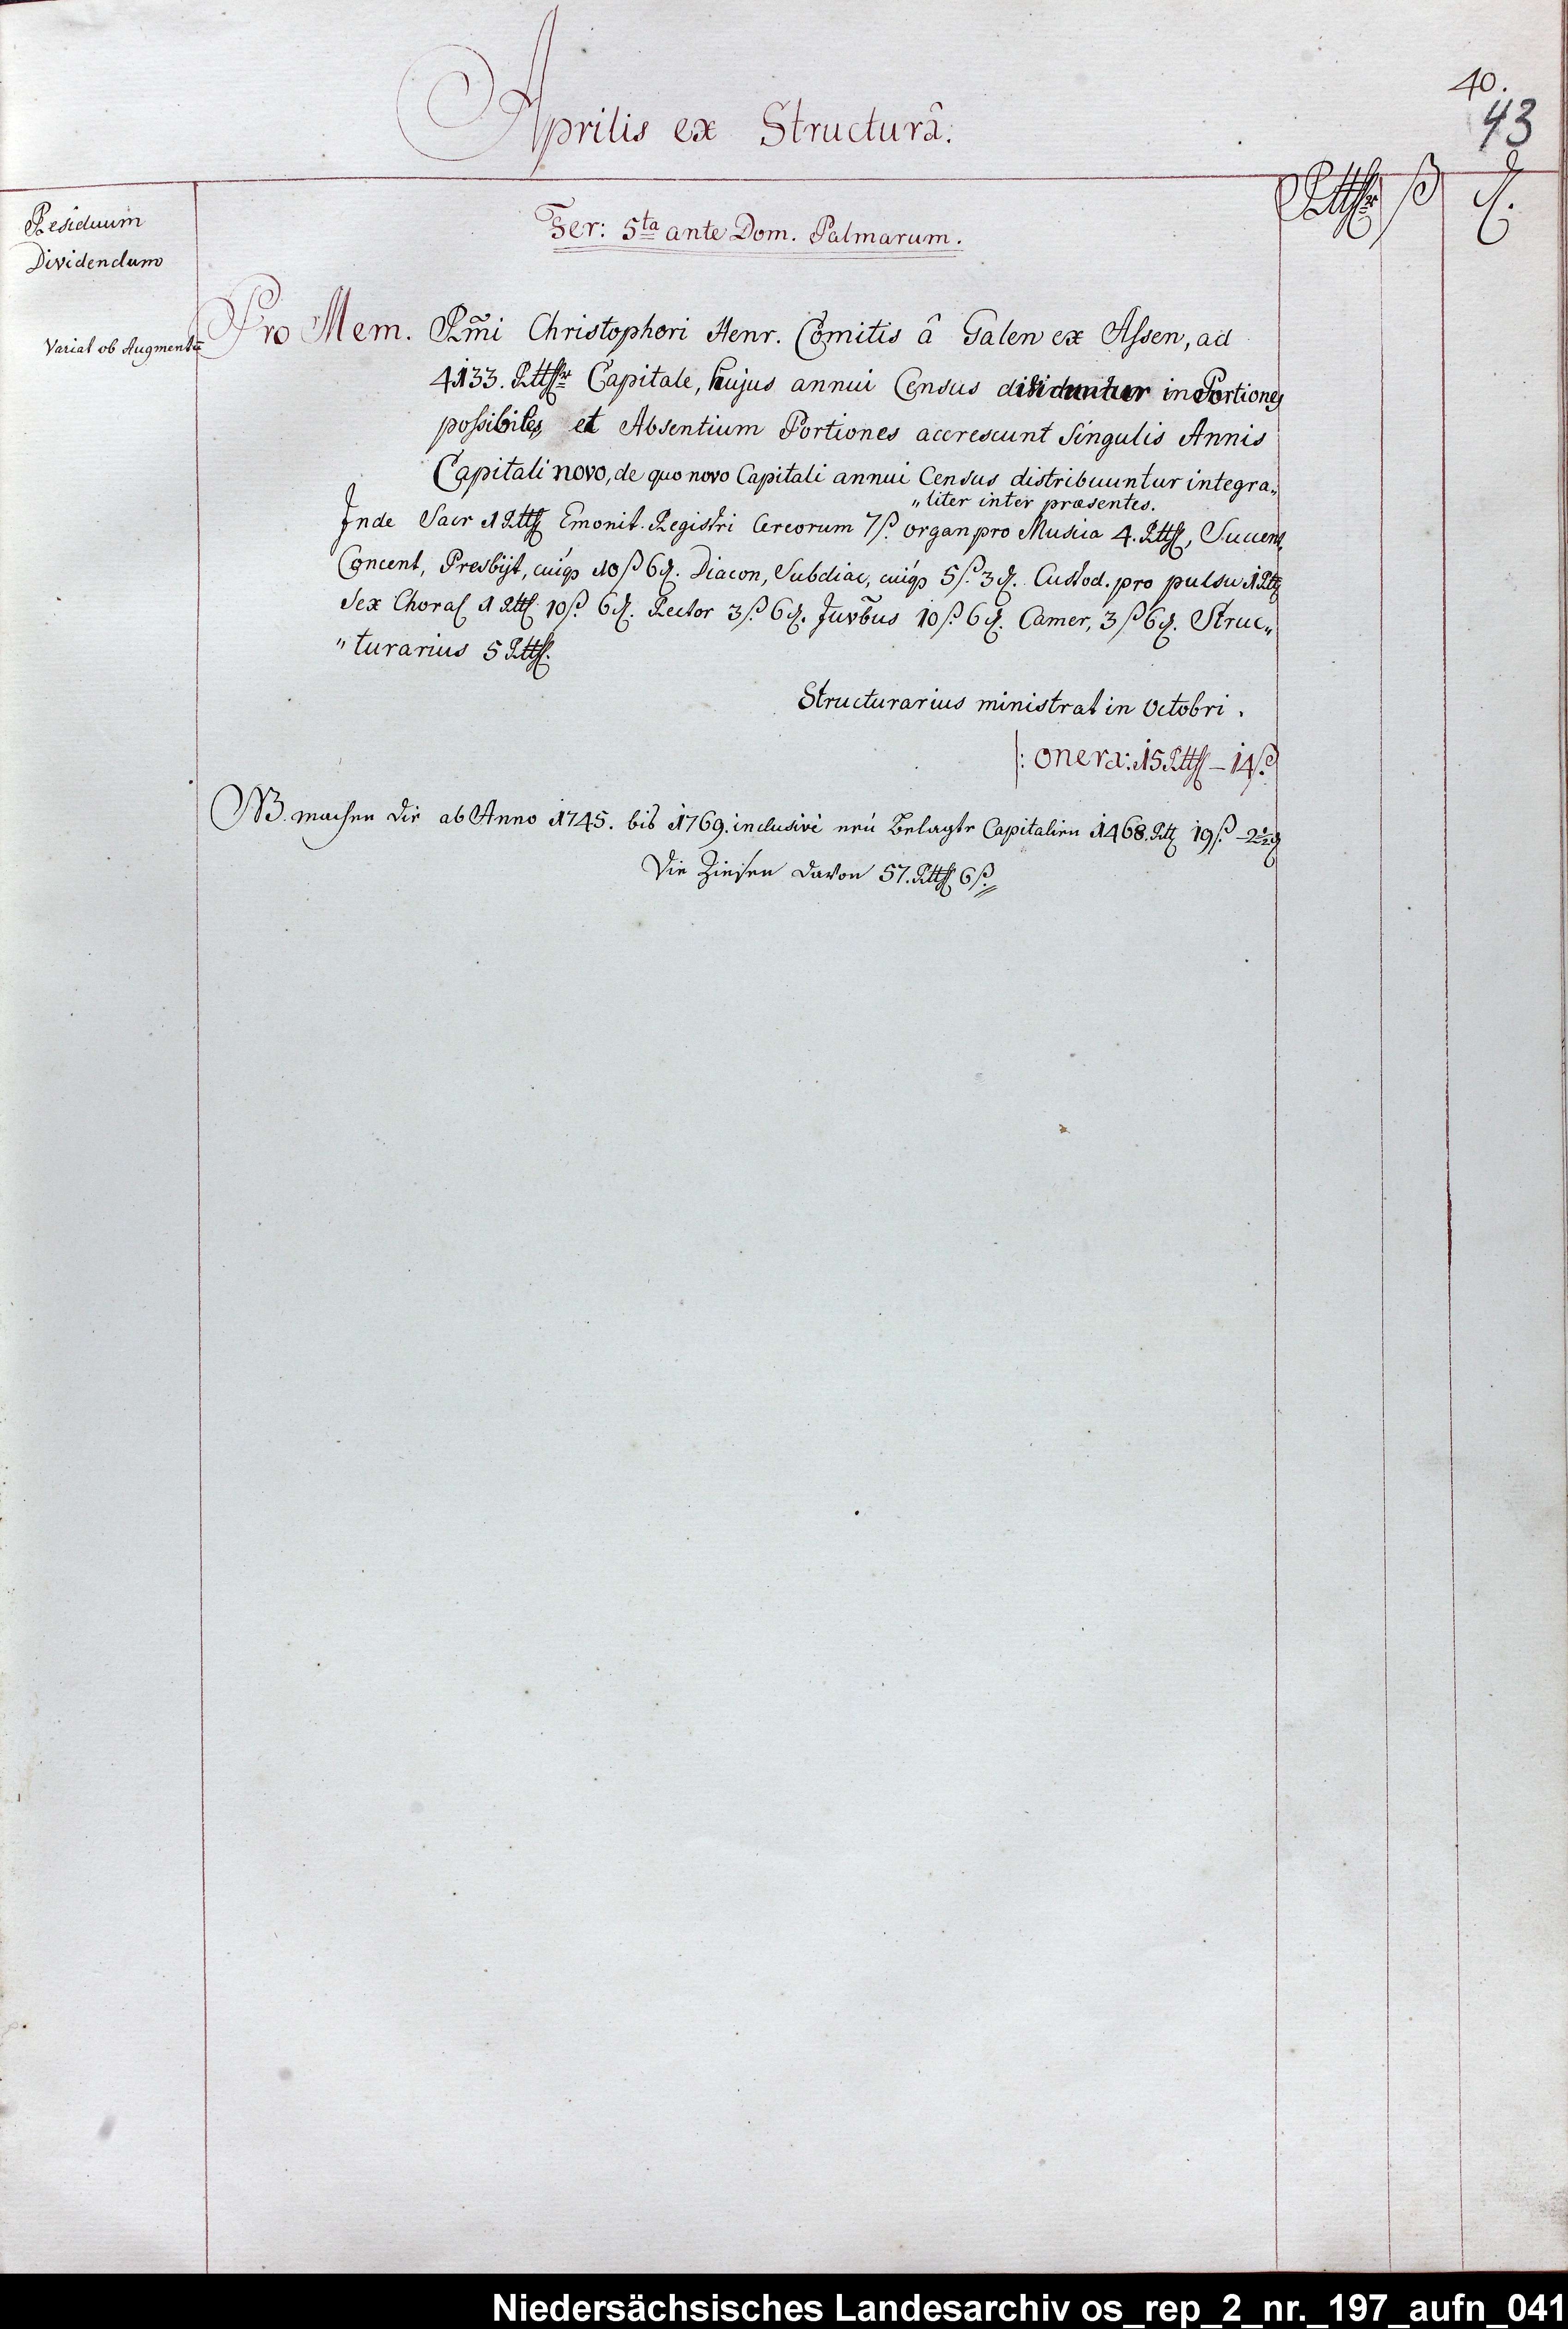 40.
43
Aprilis ex Structurâ.
Rttlr ß ₰.
Residuum
Dividendum
Fer: 5ta ante Dom. Palmarum.
Variat ob Augmentū
Pro Mem. Rm̃i Christophori Henr. Comitis â Galen ex Assen, ad
4133. Rttlr Capitale, hujus annui Census dividuntur in Portiones
possibiles et Absentium Portiones accrescunt Singulis Annis
Capitali novo, de quo novo Capitali annui Census distribuuntur integra„
„liter inter præsentes.
Inde Sacr 1 Rttl Emonit. Registri Cereorum 7ß. organ pro Musica 4. Rttl, Succent,
Concent, Presbijt, cuiq 10ß 6₰. Diacon, Subdiac, cuiq 5ß. 3₰. Custod. pro pulsu 1 Rtl
Sex Choral 1 Rttl 10ß. 6₰. Rector 3ß. 6₰. Juvb̃us 10ß. 6₰. Camer, 3ß 6₰. Struc„
„turarius 5 Rttl.
Structurarius ministrat in Octobri.
|: onera: 15 Rttl – 14ß.
NB. machen die ab Anno 1745. bis 1769. inclusivè neü Belagte Capitalien 1468. Rtl 19ß. – 2½₰
Die Ziesen davon 57. Rttl 6ß.
Niedersächsisches Landesarchiv os_rep_2_nr._197_aufn_041